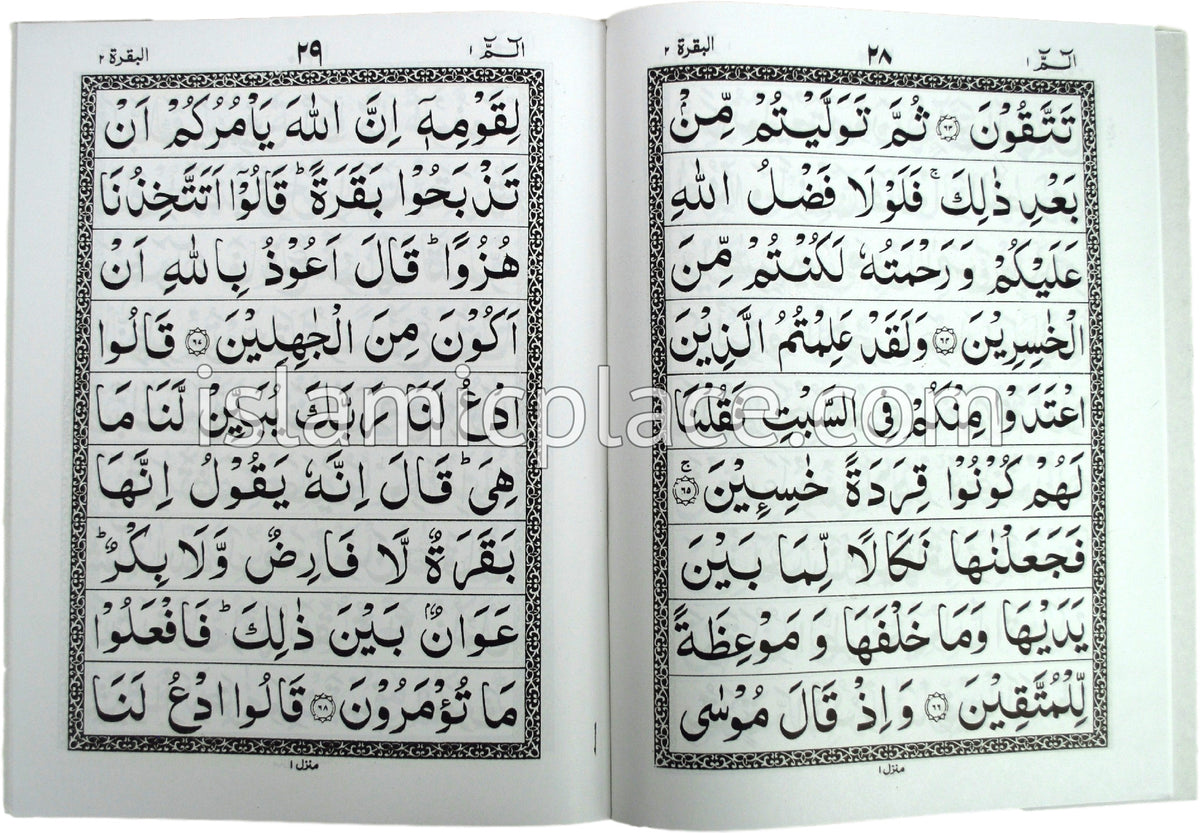 الٓمّٓ ١
٢٨
البقرة ٢
تَتَّقُوْنَ ﴿٦٣﴾ ثُمَّ تَوَلَّيْتُمْ مِّنْۢ
بَعْدِ ذٰلِكَ ۚ فَلَوْلَا فَضْلُ اللّٰهِ
عَلَيْكُمْ وَرَحْمَتُهٗ لَكُنْتُمْ مِّنَ
الْخٰسِرِيْنَ ﴿٦٤﴾ وَلَقَدْ عَلِمْتُمُ الَّذِيْنَ
اعْتَدَوْا مِنْكُمْ فِي السَّبْتِ فَقُلْنَا
لَهُمْ كُوْنُوْا قِرَدَةً خٰسِـِٕيْنَ ۚ ﴿٦٥﴾
فَجَعَلْنٰهَا نَكَالًا لِّمَا بَيْنَ
يَدَيْهَا وَمَا خَلْفَهَا وَ مَوْعِظَةً
لِّلْمُتَّقِيْنَ ﴿٦٦﴾ وَاِذْ قَالَ مُوْسٰى
منزل ١
الٓمّٓ ١
٢٩
البقرة ٢
لِقَوْمِهٖٓ اِنَّ اللّٰهَ يَاْمُرُكُمْ اَنْ
تَذْبَحُوْا بَقَرَةً ؕ قَالُوْٓا اَتَتَّخِذُنَا
هُزُوًا ؕ قَالَ اَعُوْذُ بِاللّٰهِ اَنْ
اَكُوْنَ مِنَ الْجٰهِلِيْنَ ﴿٦٧﴾ قَالُوا
ادْعُ لَنَا رَبَّكَ يُبَيِّنْ لَّنَا مَا
هِيَ ؕ قَالَ اِنَّهٗ يَقُوْلُ اِنَّهَا
بَقَرَةٌ لَّا فَارِضٌ وَّلَا بِكْرٌ ؕ
عَوَانٌۢ بَيْنَ ذٰلِكَ ؕ فَافْعَلُوْا
مَا تُؤْمَرُوْنَ ﴿٦٨﴾ قَالُوا ادْعُ لَنَا
منزل ١
islamicplace.com